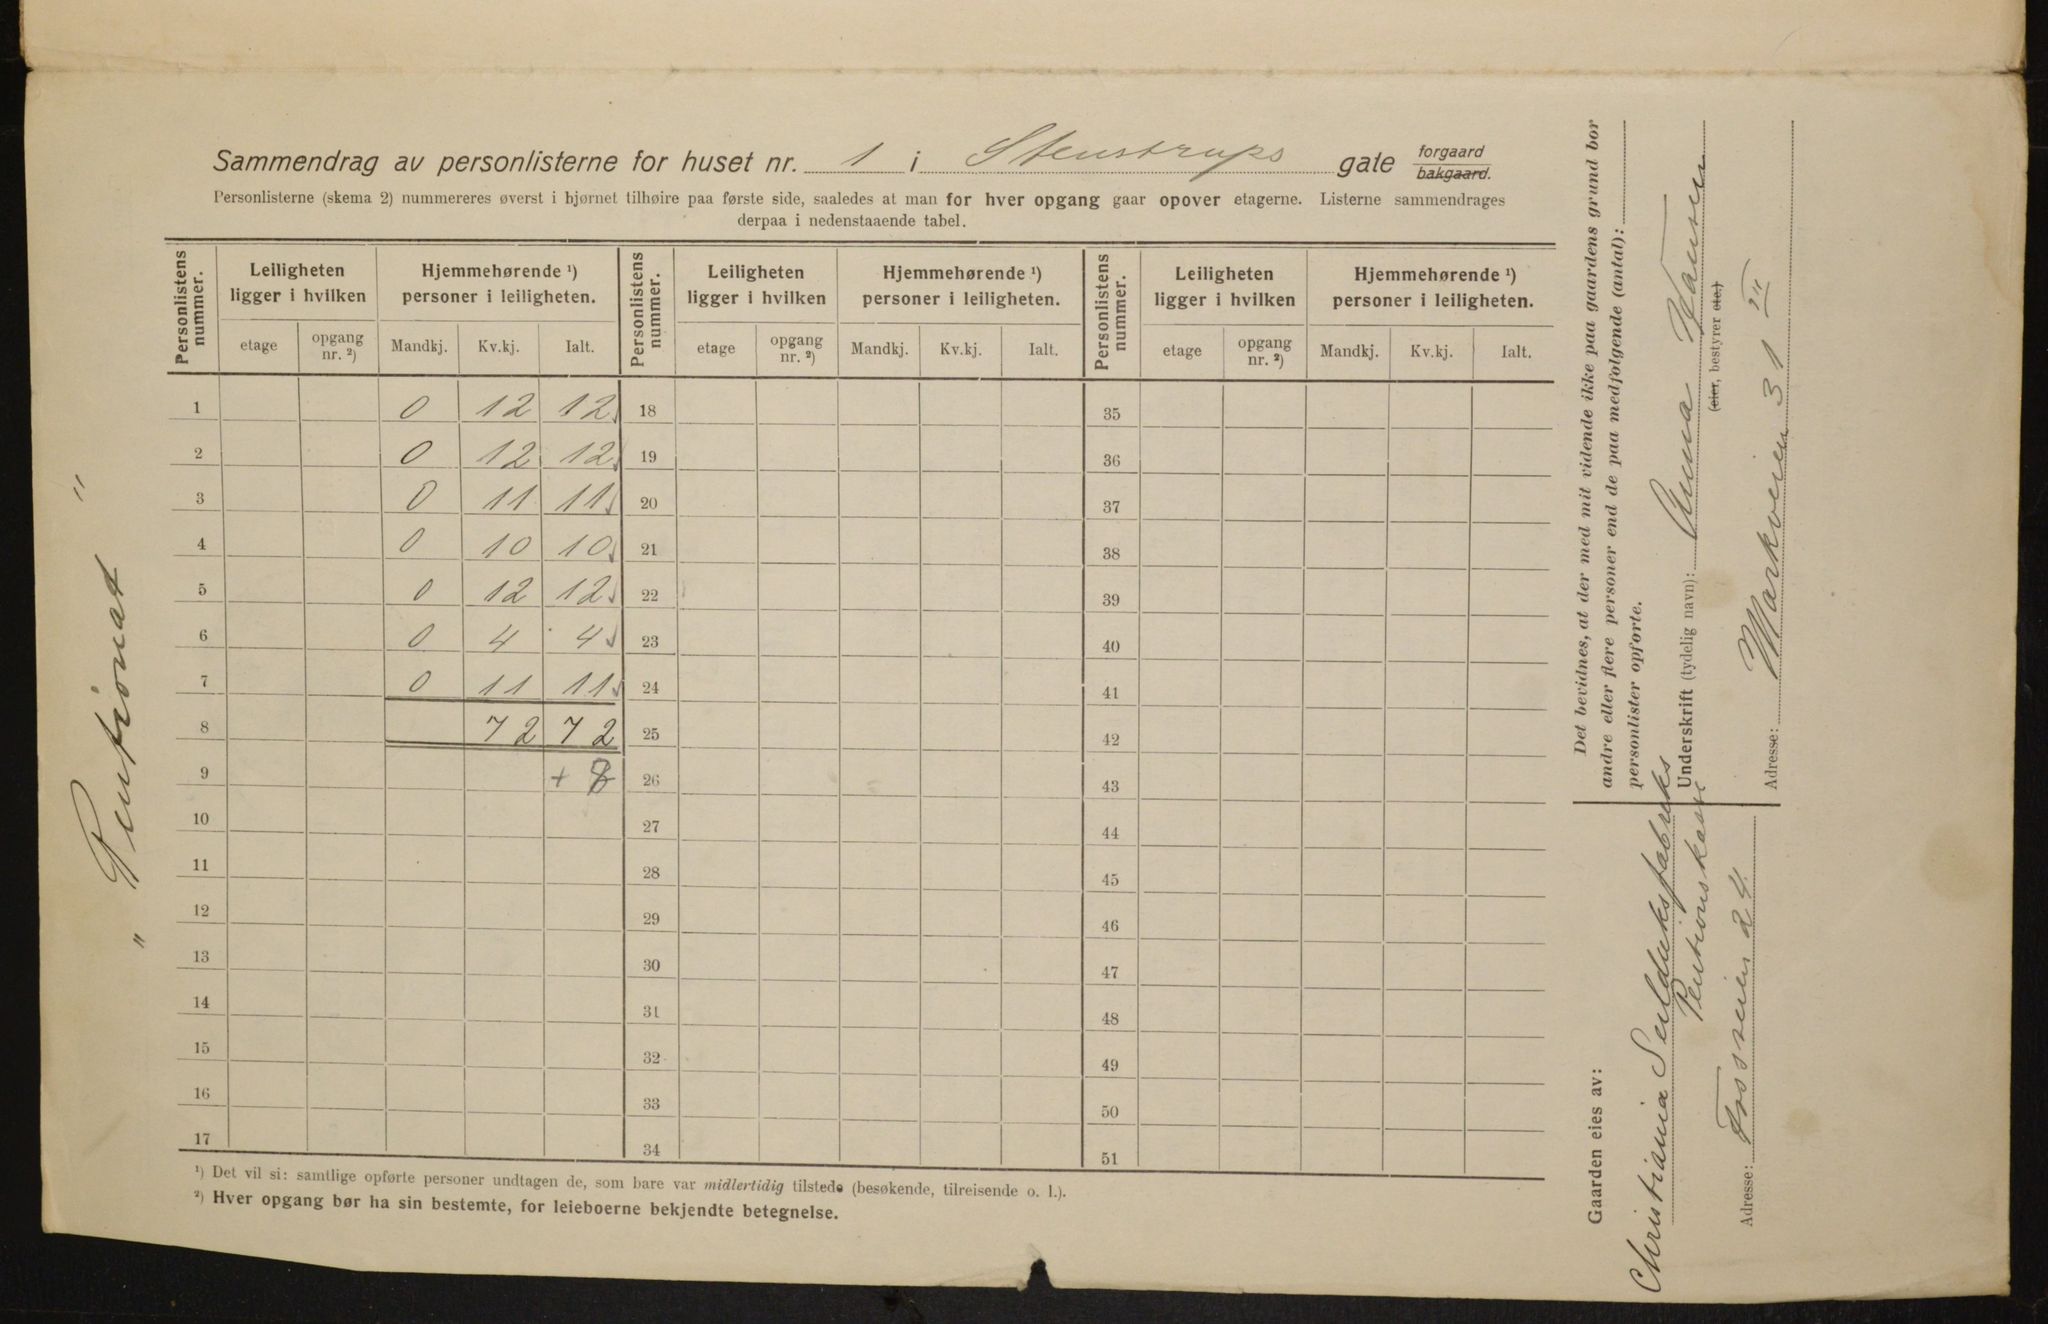 Sammendrag av personlisterne for huset nr. 1 i Stenstrups gate forgaard bakgaard.
Personlisterne (skema 2) nummereres øverst i hjørnet tilhøire paa første side, saaledes at man for hver opgang gaar opover etagerne. Listerne sammendrages
derpaa i nedenstaaende tabel.
Personlistens nummer. Leiligheten ligger i hvilken Hjemmehørende ¹) personer i leiligheten. Personlistens nummer. Leiligheten ligger i hvilken Hjemmehørende ¹) personer i leiligheten. Personlistens nummer. Leiligheten ligger i hvilken Hjemmehørende ¹) personer i leiligheten.
etage opgang nr. ²) Mandkj. Kv.kj. Ialt. etage opgang nr. ²) Mandkj. Kv.kj. Ialt. etage opgang nr. ²) Mandkj. Kv.kj. Ialt.
1 0 12 12 18 35
2 0 12 12 19 36
3 0 11 11 20 37
4 0 10 10 21 38
5 0 12 12 22 39
6 0 4 4 23 40
7 0 11 11 24 41
8 72 72 25 42
9 + 26 43
10 27 44
11 28 45
12 29 46
13 30 47
14 31 48
15 32 49
16 33 50
17 34 51
¹) Det vil si: samtlige opførte personer undtagen de, som bare var midlertidig tilstede (besøkende, tilreisende o. l.).
²) Hver opgang bør ha sin bestemte, for leieboerne bekjendte betegnelse.
" Pentionat "
Det bevidnes, at der med mit vidende ikke paa gaardens grund bor
andre eller flere personer end de paa medfolgende (antal):
personlister opforte.
Underskrift (tydelig navn): Anna Hansen
(eier, bestyrer etc.)
Adresse: Markveien 31 III
Gaarden eies av:
Christiania Seilduksfabriks
Pentionskasse
Adresse: Fossveien 24.